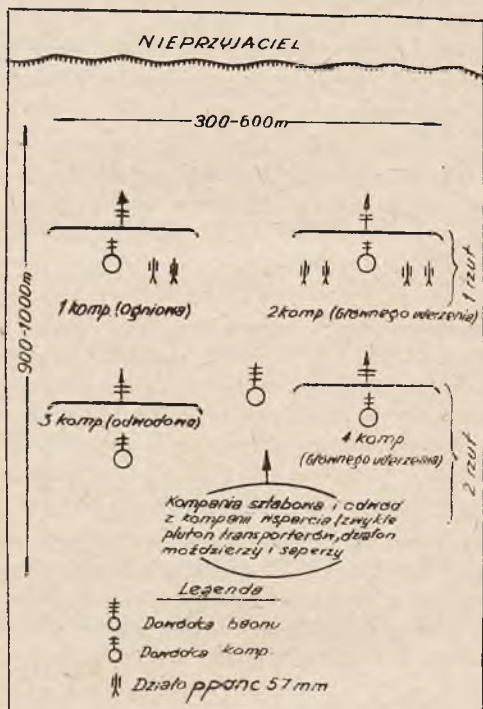 NIEPRZYJACIEL
300-600m
900-1000m
1 komp. (Ogniowa)
2 komp (Głównego uderzenia)
1 rzut
3 komp (odwodowa)
4 komp
(Głównego uderzenia)
2 rzut
Kompania sztabowa i odwód
z kompanii wsparcia (zwykle
pluton transporterów, działon
moździerzy i saperzy
Legenda
Dowódca baonu
Dowódca komp.
Działo ppanc 57mm